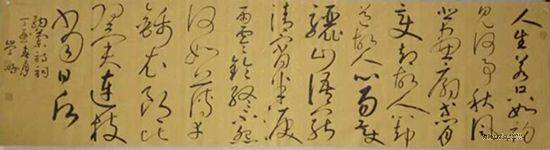 人生若只如初
见何事秋风
悲画扇等闲
变却故人却
道故人心易变
骊山语罢
清宵半夜
雨霖铃终不怨
何如薄幸
锦衣郎比
翼连枝
当日愿
纳兰诗词
丁亥春月